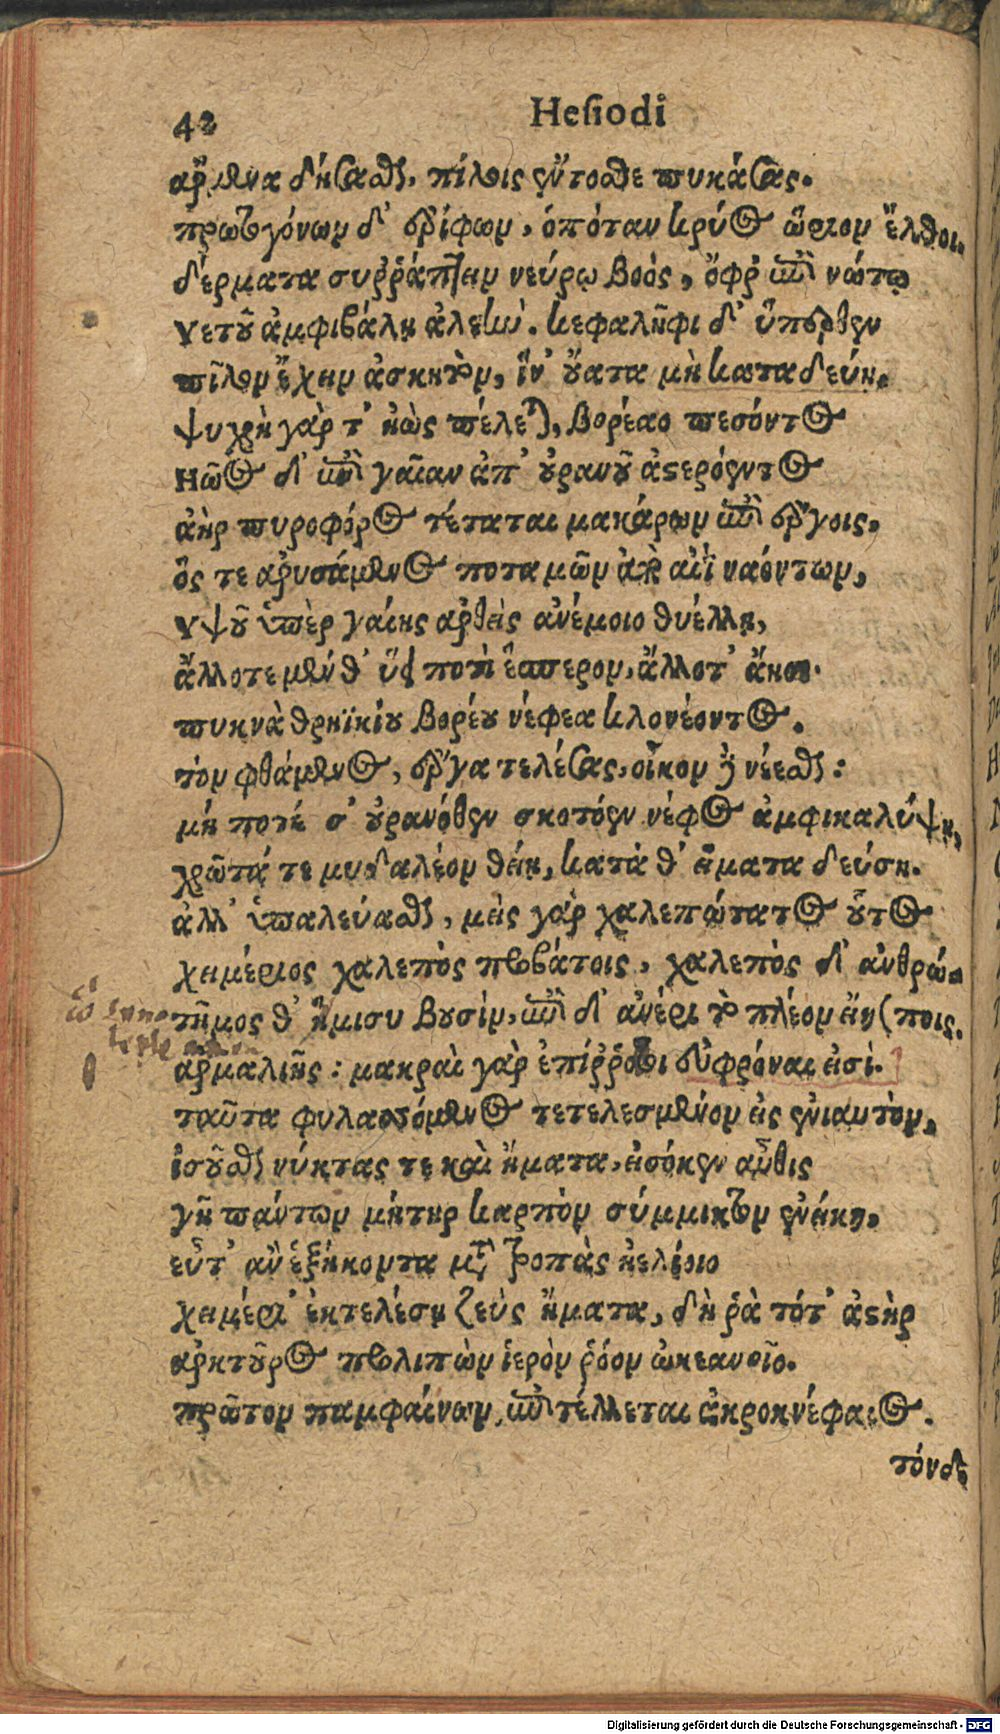 42
Hesiodi
ἄρμενα δήσασθαι, πίλοις ἔντοσθε πυκάσας.
πρωτογόνων δ' ἐρίφων, ὁπόταν κρύος ὥριον ἔλθοι,
δέρματα συῤῥάπτειν νεύρῳ βοὸς, ὄφρ' ἐπὶ νώτῳ
ὑετοῦ ἀμφιβάλῃ ἀλεὴν. κεφαλῆφι δ' ὕπερθεν
πῖλον ἔχειν ἀσκητὸν, ἵν' οὔατα μὴ καταδεύῃ.
ψυχρὴ γὰρ τ' ἠὼς πέλεται, βορέαο πεσόντος
ἠῶος δ' ἐπὶ γαῖαν ἀπ' οὐρανοῦ ἀστερόεντος
ἀὴρ πυροφόρος τέταται μακάρων ἐπὶ ἔργοις.
ὅς τε ἀρυσάμενος ποταμῶν ἀπὸ αἰὲν ναόντων,
ὑψοῦ ὑπὲρ γαίης ἀρθεὶς ἀνέμοιο θυέλλῃ,
ἄλλοτε μέν θ' ὕει ποτὶ ἕσπερον, ἄλλοτ' ἄησι.
πυκνὰ θρηϊκίου βορέου νέφεα κλονέοντος.
τὸν φθάμενος, ἔργα τελέσας, οἶκον δὲ νέεσθαι:
μή ποτέ σ' οὐρανόθεν σκοτόεν νέφος ἀμφικαλύψῃ,
χρῶτά τε μυδαλέον θείη, κατὰ θ' εἵματα δεύσῃ.
ἀλλ' ὑπαλεύασθαι, μεὶς γὰρ χαλεπώτατος οὗτος
χειμέριος χαλεπὸς προβάτοις, χαλεπὸς δ' ἀνθρώ-
τῆμος θ' ἥμισυ βουσὶν, ἐπὶ δ' ἀνέρι τὸ πλέον εἴη (ποις.
ἁρμαλιῆς: μακραὶ γὰρ ἐπίῤῥοθοι εὐφρόναι εἰσὶ.
ταῦτα φυλασσόμενος τετελεσμένον εἰς ἐνιαυτὸν,
ἰσοῦσθαι νύκτας τε καὶ ἤματα, εἰσόκεν αὖθις
γῆ πάντων μήτηρ καρπὸν σύμμικτον ἐνείκῃ.
εὖτ' ἂν ἑξήκοντα μετὰ τροπὰς ἠελίοιο
χειμέρι' ἐκτελέσῃ ζεὺς ἤματα, δὴ ῥὰ τότ' ἀστὴρ
ἀρκτοῦρος προλιπὼν ἱερὸν ῥόον ὠκεανοῖο.
πρῶτον παμφαίνων, ἐπιτέλλεται ἀκροκνέφαιος.
τόνδε
Digitalisierung gefördert durch die Deutsche Forschungsgemeinschaft - DFG